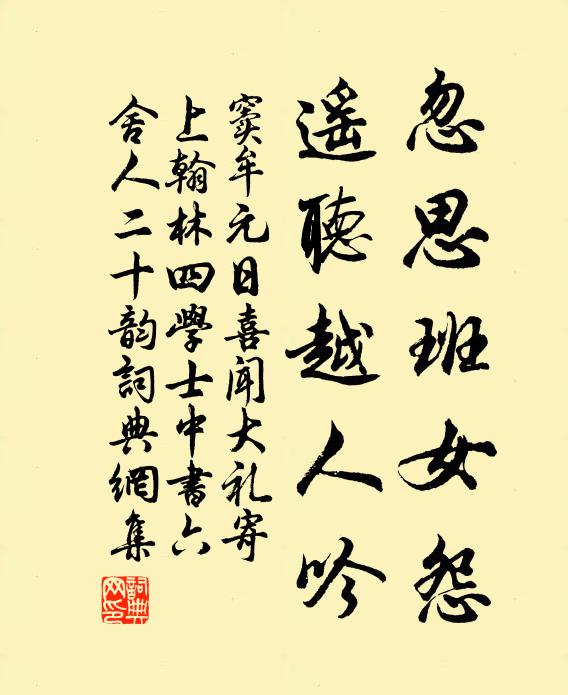 忽思班女怨
遥聽越人吟
窦牟元日喜闻大礼寄
上翰林四學士中書六
舍人二十韵詞典網集
詞典
网印